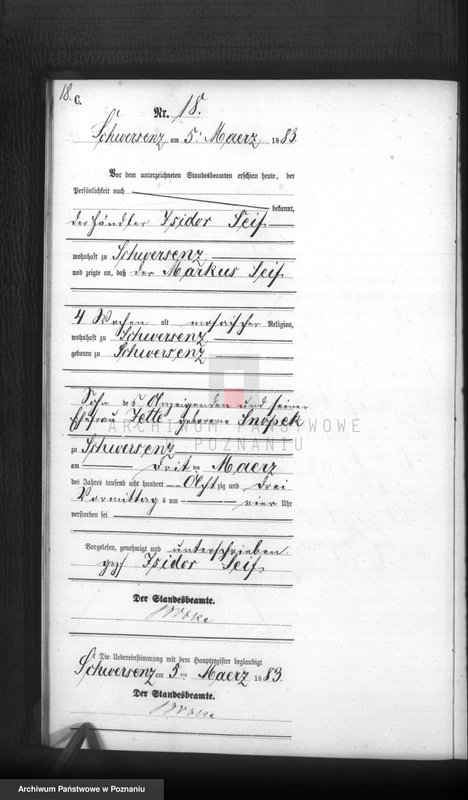 18.
C.
Nr. 18.
Schwersenz am 5. Maerz 1883.
Vor dem unterzeichneten Standesbeamten erschien heute, der
Persönlichkeit nach
bekannt,
der Händler Isidor Seif
wohnhaft zu Schwersenz
und zeigte an, daß der Markus Seif
4 Wochen alt mosaischer Religion,
wohnhaft zu Schwersenz
geboren zu Schwersenz
Sohn des Anzeigenden und seiner
Ehefrau Jette geborene Snopek
ARCHIWUM PAŃSTWOWE
W POZNANIU
zu Schwersenz
am Dritten Maerz
des Jahres tausend acht hundert Achtzig und drei
Vormittags um vier Uhr
verstorben sei
Vorgelesen, genehmigt und unterschrieben.
gez. Isidor Seif
Der Standesbeamte.
Die Uebereinstimmung mit dem Hauptregister beglaubigt
Schwersenz am 5ten Maerz 1883.
Der Standesbeamte.
Archiwum Państwowe w Poznaniu